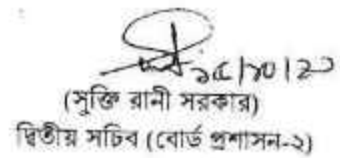 ১৫/১০/২০
(সুক্তি রানী সরকার)
দ্বিতীয় সচিব (বোর্ড প্রশাসন-২)